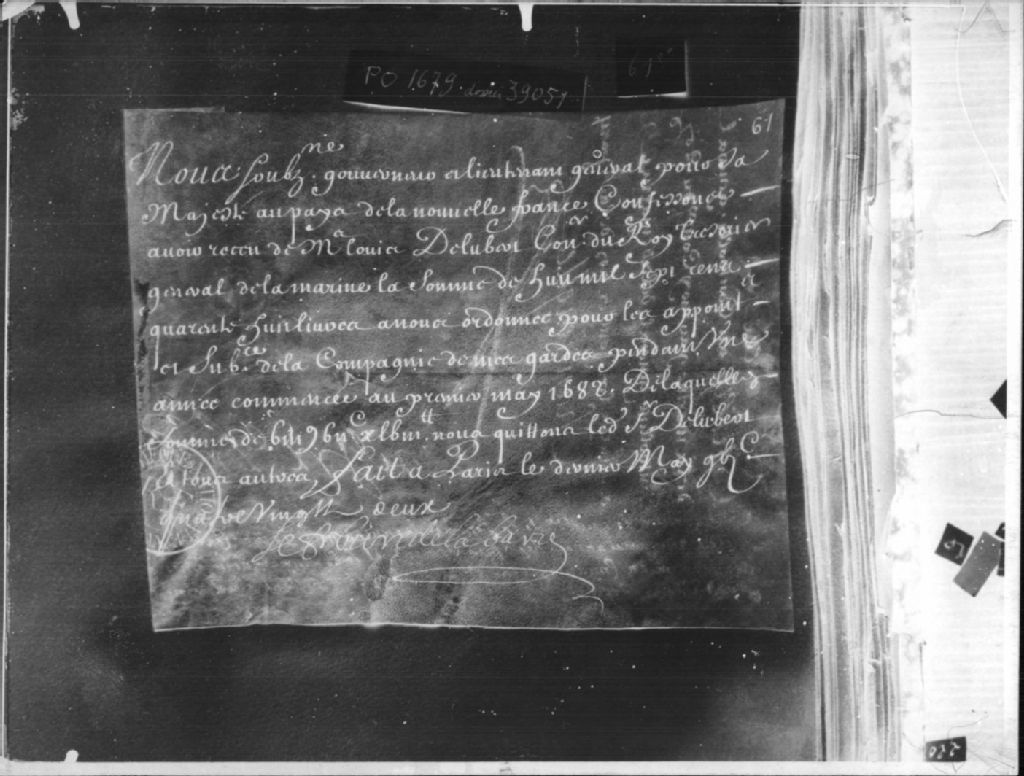 PO 1679 dossier 39051
61
61
Nous soubz.ne gouverneur et lieutenant general pour Sa
Majesté au pays de la nouvelle france Confessons
avoir receu de Me Louis Delubert Con.er du Roy Tresorier
general de la marine la Somme de huit mil Sept cens
quarente huit livres a nous ordonnee pour les appoint.s
et Sub.ces de la Compagnie de mes gardes pendant Une
annee commencée au premier may 1682. De laquelle
Somme de viij.m vij.c xlviij.tt nous quittons led. S.r Delubert
et tous autres, fait a Paris le dernier May
quatre Vingtz deux